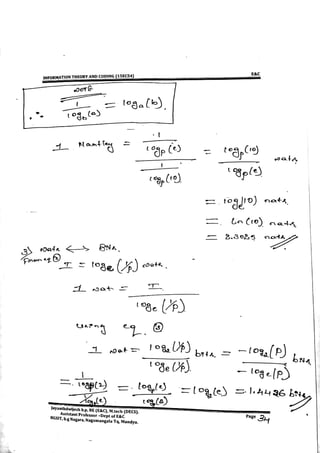 INFORMATION THEORY AND CODING (15EC54) E&C
NOTE
∴ 1 / log_b(a) = log_a(b).
1 Hartley = (1 / log_p(e)) / (1 / log_p(10)) = log_p(10) / log_p(e) nats
= log_e(10) nats
= ln(10) nats
= 2.3025 nats
3) Nats <-> Bits.
from eq
I = log_e(1/p) nats.
1 nat = I / log_e(1/p)
using eq.
1 nat = log_2(1/p) / log_e(1/p) bits = -log_2(p) / -log_e(p) bits
= (1/log_p(2)) / (1/log_p(e)) = log_p(e) / log_p(2) = log_2(e) = 1.4426 bits
Assistant Professor -Dept of E&C
BGSIT, b.g Nagara, Nagamangala Tq, Mandya.
Page 34